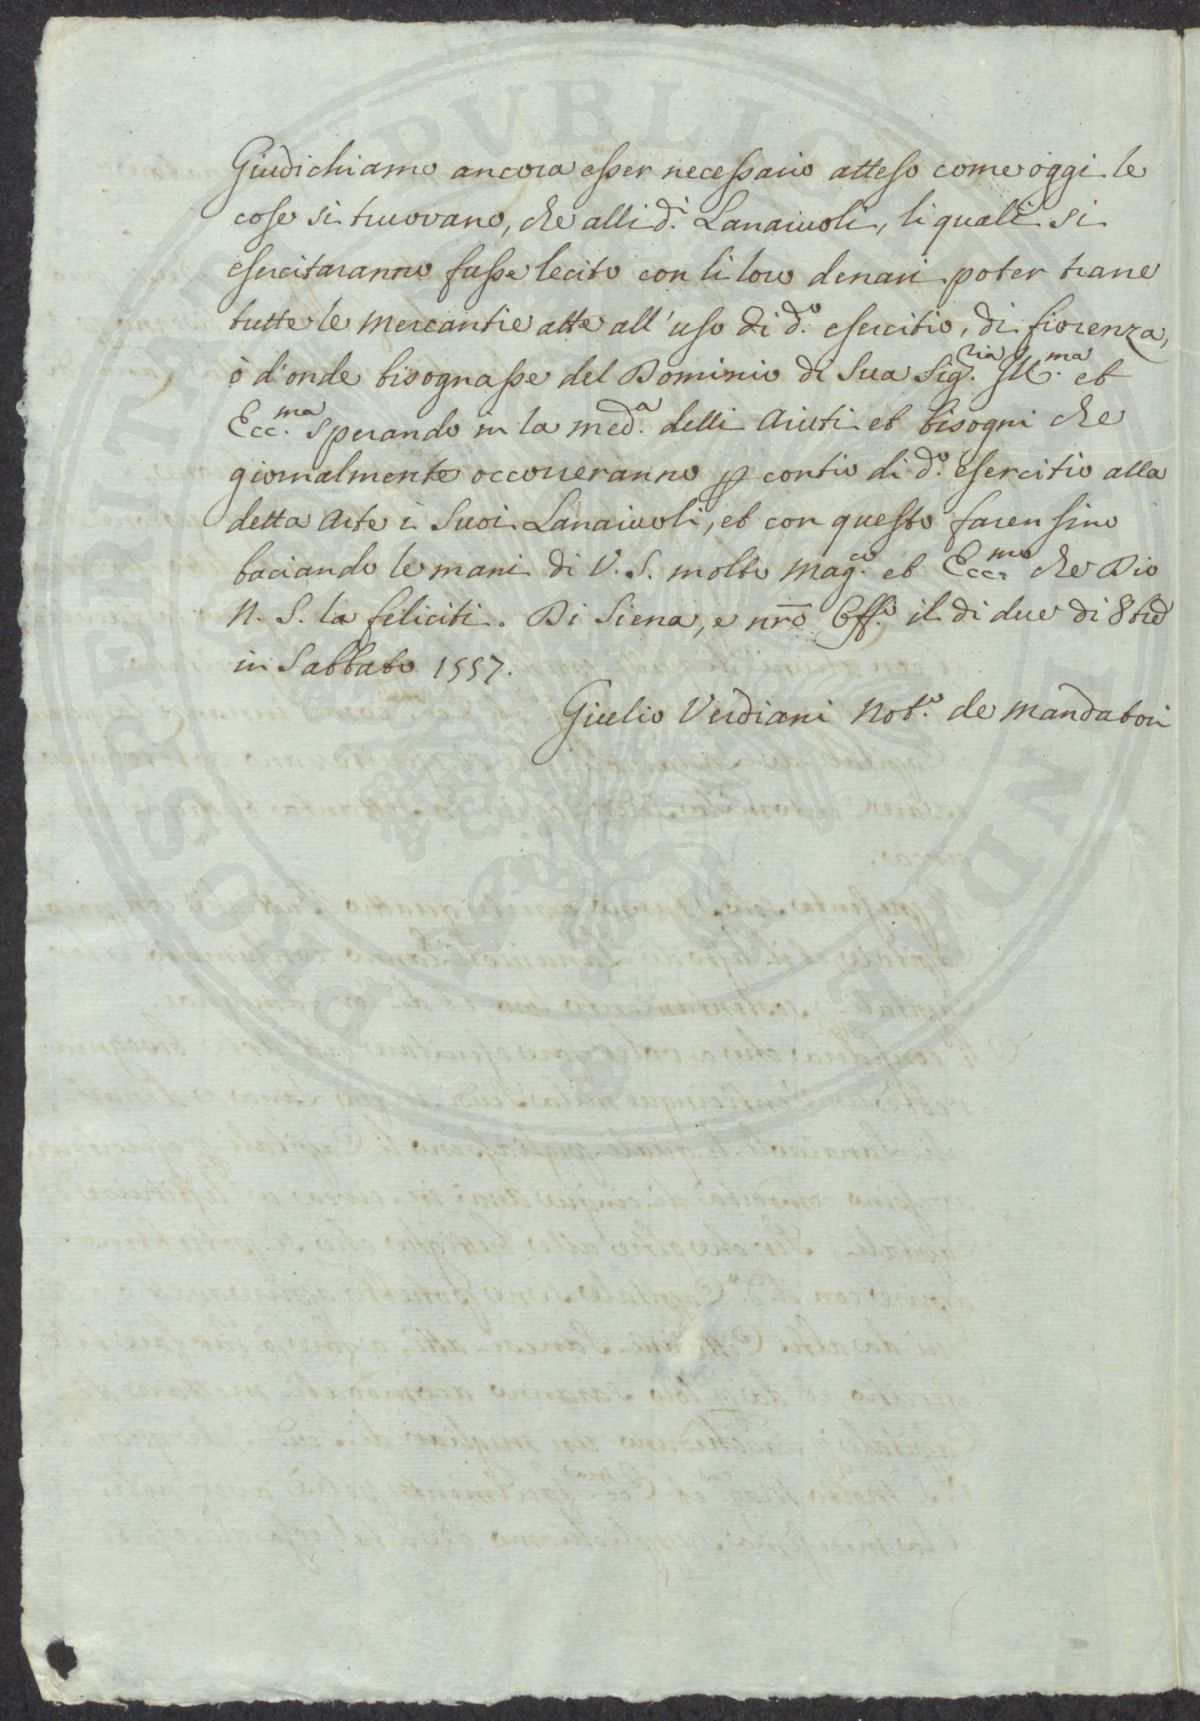 Giudichiamo ancora esser necessario atteso come oggi le
cose si truovano, che alli d.i Lanaiuoli, li quali si
esercitaranno fusse lecito con li loro denari poter trarre
tutte le mercantie atte all'uso di d.o esercitio, di fiorenza,
ò d'onde bisognasse del Dominio di Sua Sig.ria Ill.ma et
Ecc.ma sperando in la med.a delli Aiuti et bisogni che
giornalmente occorreranno p contio di d.o esercitio alla
detta Arte i Suoi Lanaiuoli, et con questo faren fino
baciando le mani di V. S. molto Mag.ca et Ecc.ma che Dio
N. S. la feliciti. Di Siena, e nrõ Off.o il di due di 8bre
in Sabbato 1557.
Giulio Verdiani Not.o de Mandatori